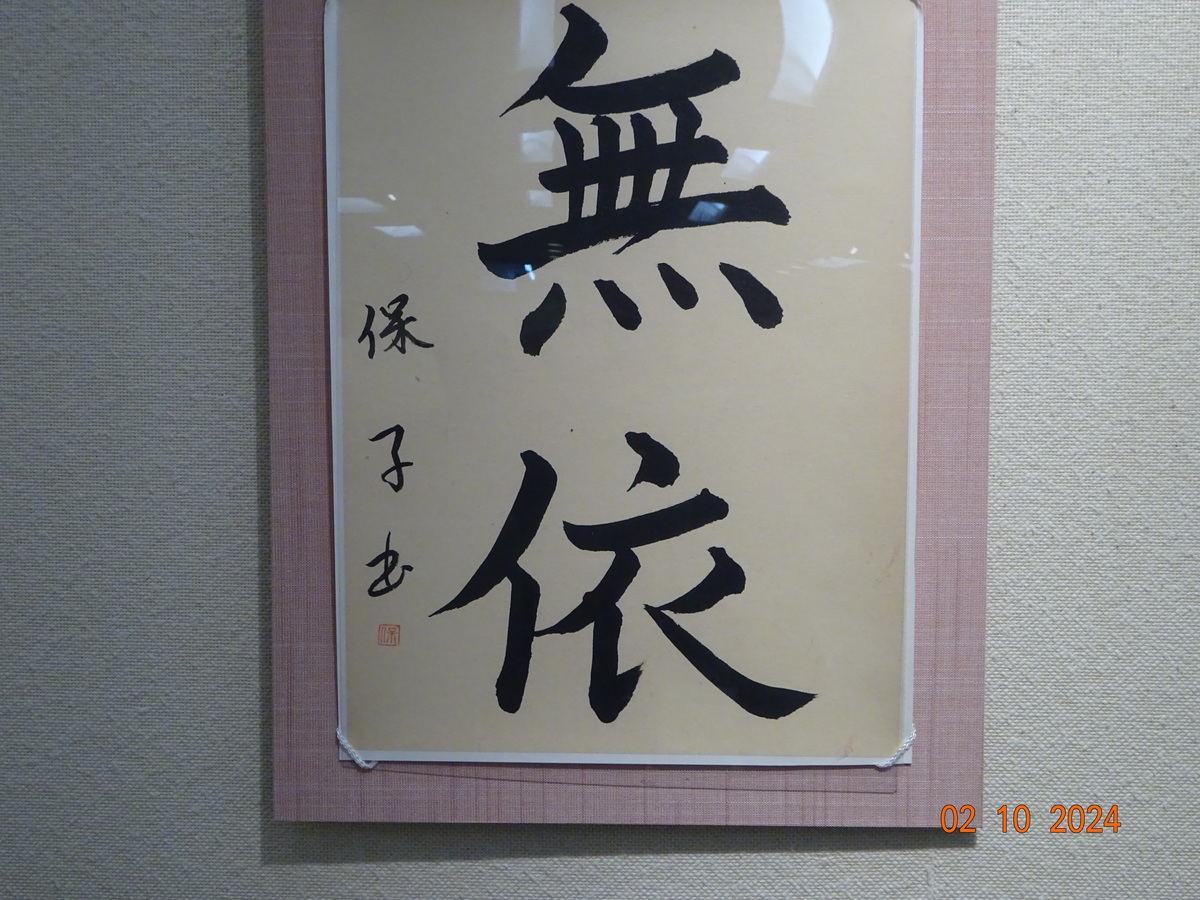 無依
保子书
保
02 10 2024